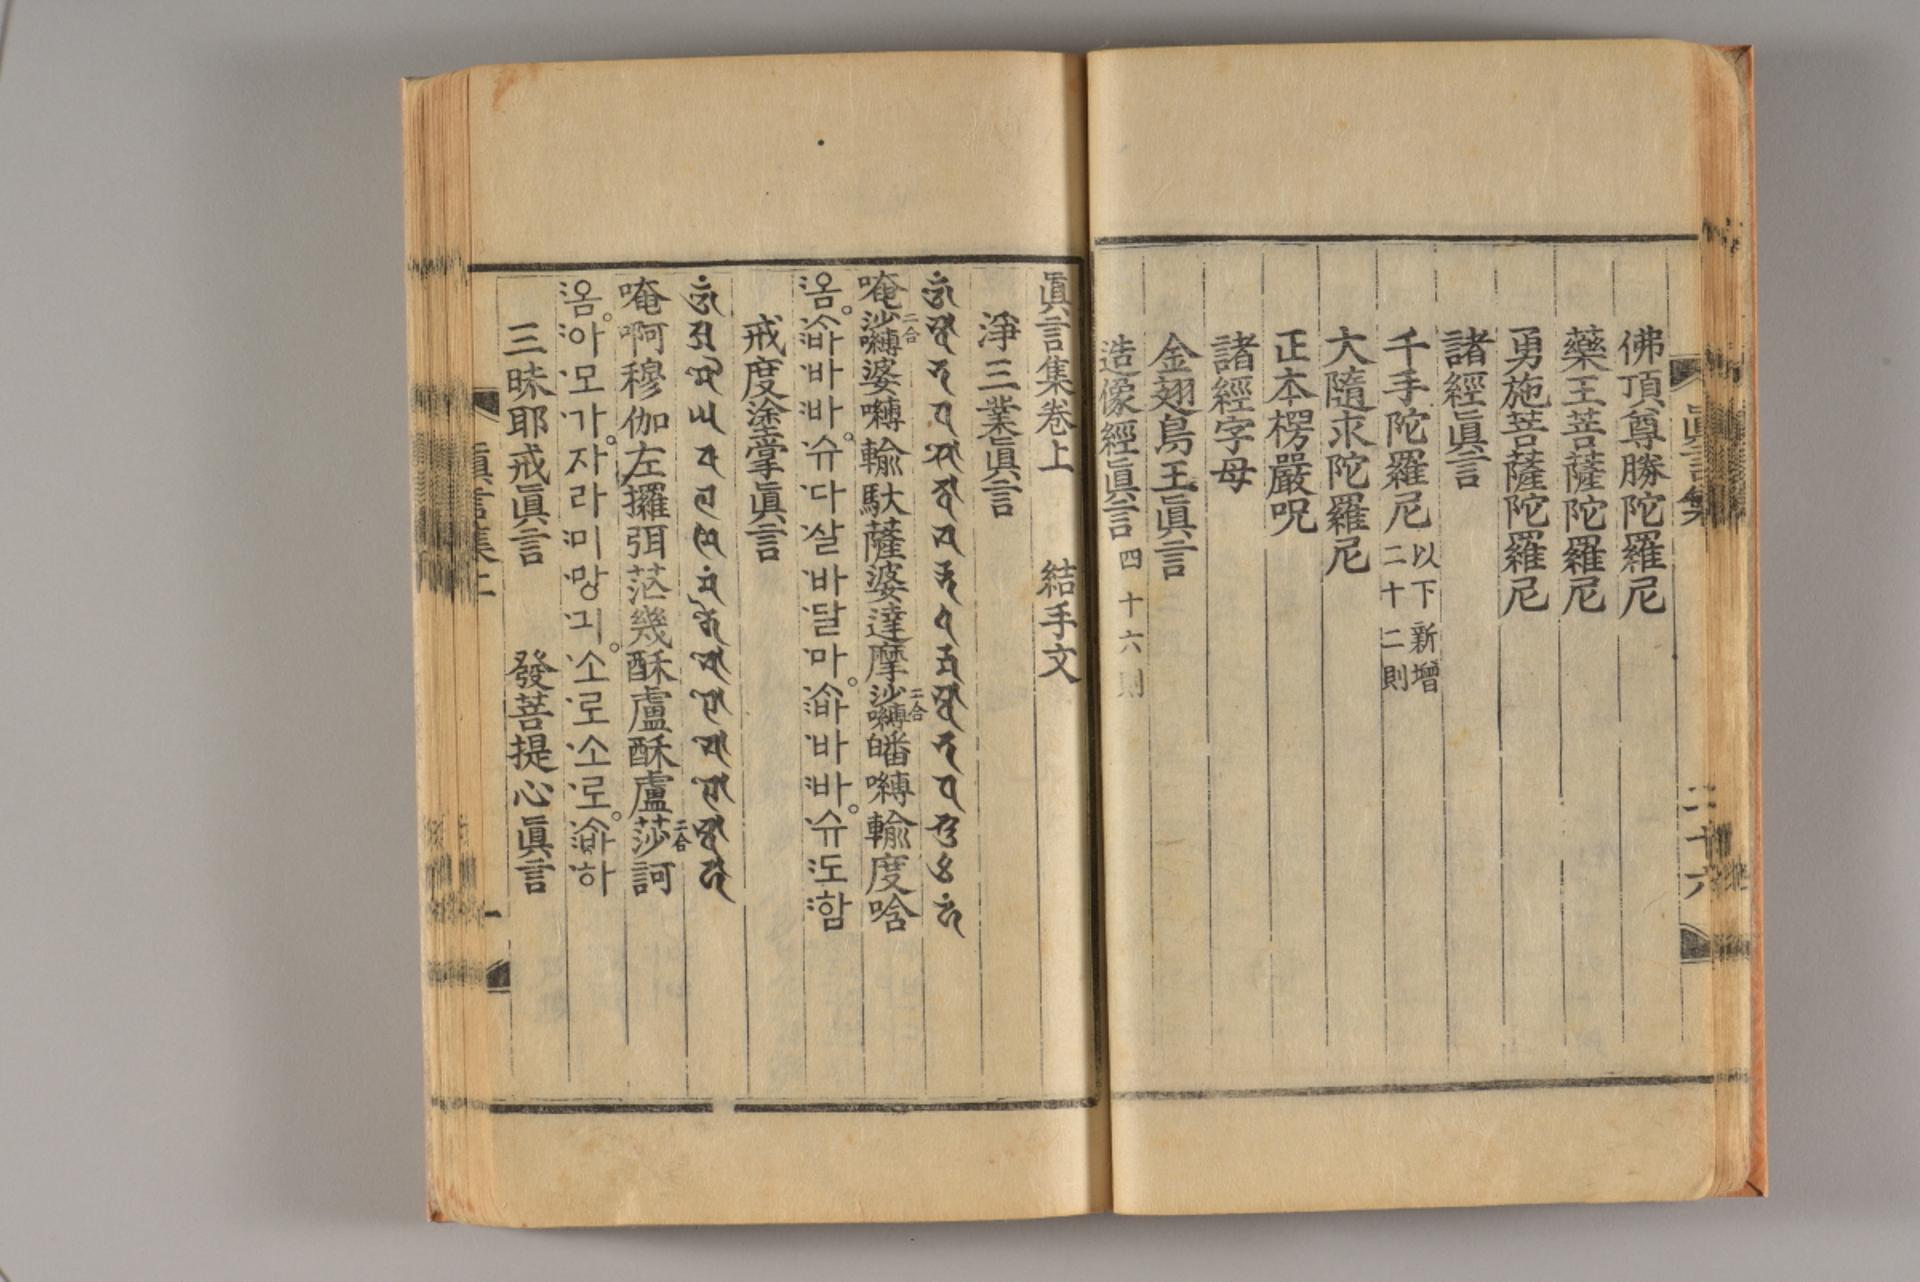 眞言集
二十六
佛頂尊勝陀羅尼
藥王菩薩陀羅尼
勇施菩薩陀羅尼
諸經眞言
千手陀羅尼 以下新增
二十二則
大隨求陀羅尼
正本楞嚴呪
諸經字母
金翅鳥王眞言
造像經眞言 四十六則
眞言集卷上 結手文
淨三業眞言
唵沙嚩二合婆嚩輸馱薩婆達摩沙嚩二合皤嚩輸度唅
옴。ᄉᆞ바바바。슈다살바달마。ᄉᆞ바바바。슈도함
戒度塗掌眞言
唵啊穆伽左攞弭茫幾酥盧酥盧莎二合訶
옴。아모가。자라미망기。소로소로。ᄉᆞ바하
三昧耶戒眞言 發菩提心眞言
眞言集上
一